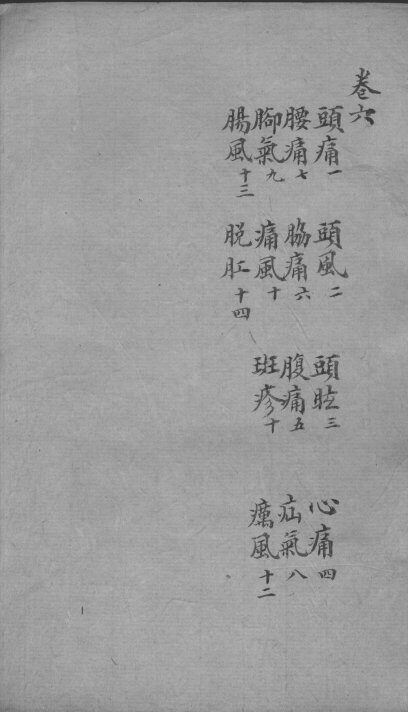 卷六
頭痛一 頭風二 頭眩三 心痛四
腰痛七 脇痛六 腹痛五 疝氣八
脚氣九 痛風十 班疹十 癘風十二
腸風十三 脱肛十四